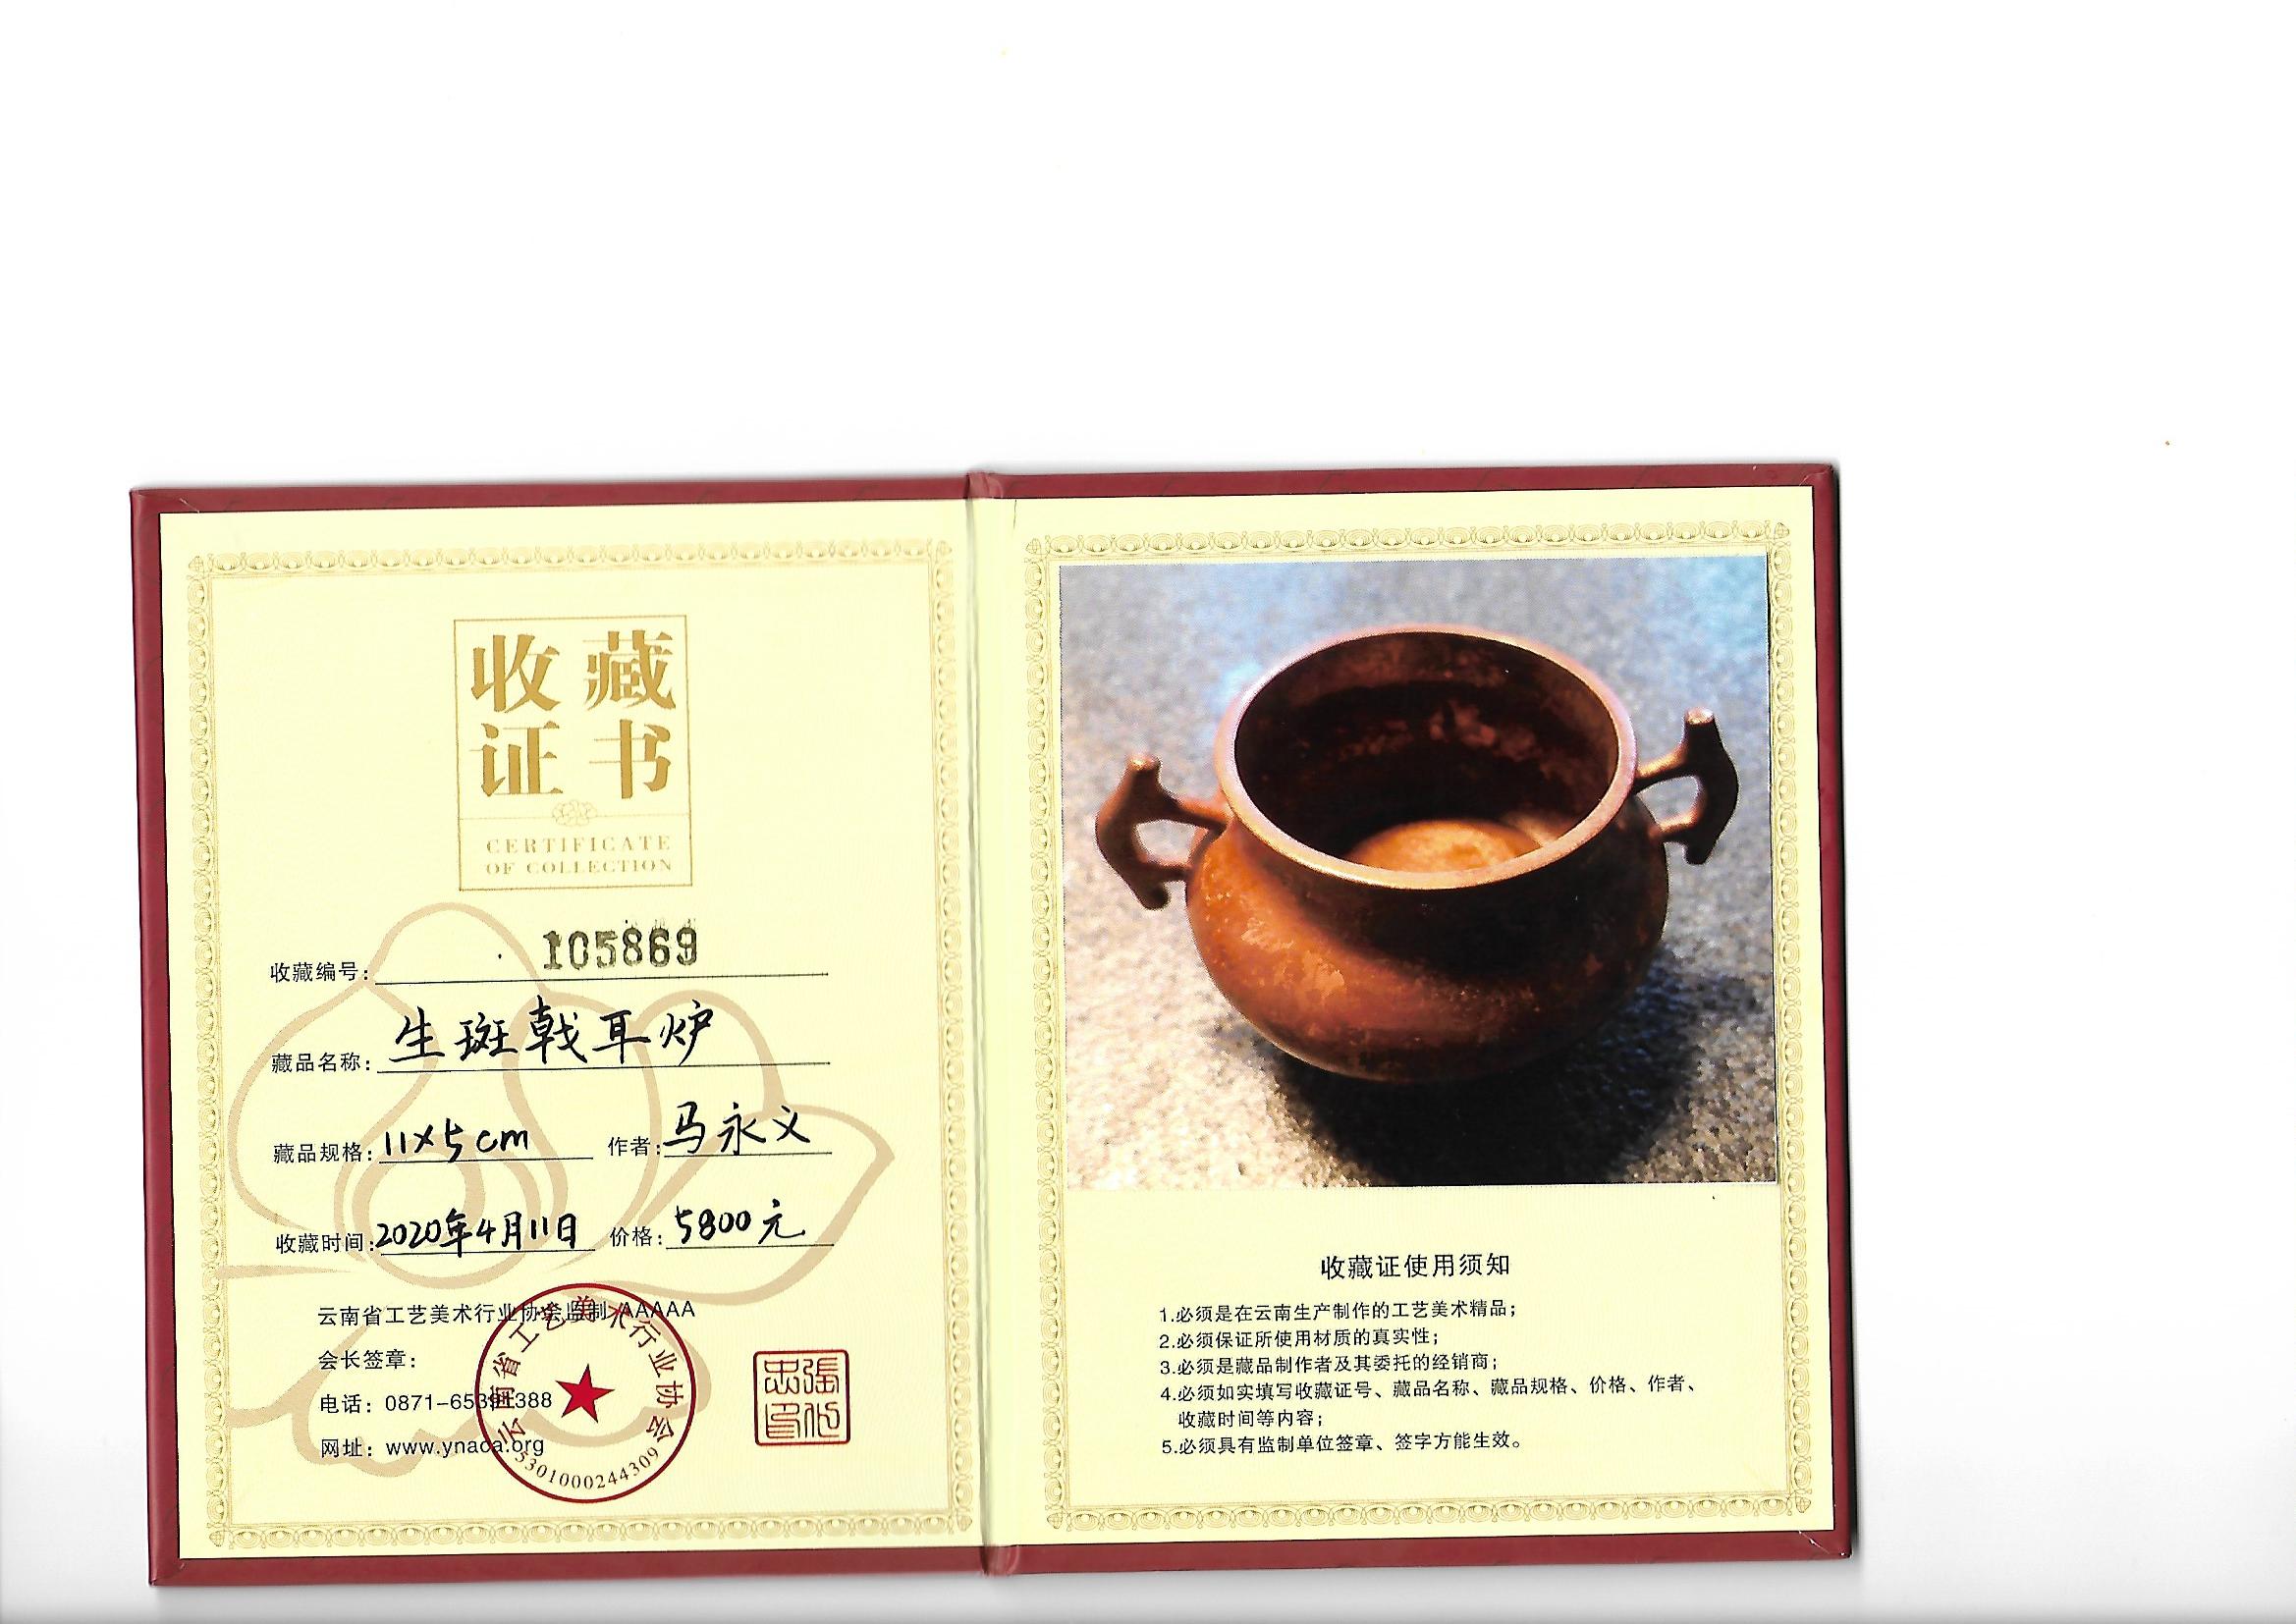 收藏
证书
CERTIFICATE
OF COLLECTION
收藏编号: 105869
藏品名称: 生斑戟耳炉
藏品规格: 11×5cm 作者: 马永义
收藏时间: 2020年4月11日 价格: 5800元
云南省工艺美术行业协会监制 AAAAA
会长签章:
电话: 0871-65391388
网址: www.ynaca.org
云南省工艺美术行业协会
5301000244309
收藏证使用须知
1.必须是在云南生产制作的工艺美术精品;
2.必须保证所使用材质的真实性;
3.必须是藏品制作者及其委托的经销商;
4.必须如实填写收藏证号、藏品名称、藏品规格、价格、作者、
收藏时间等内容;
5.必须具有监制单位签章、签字方能生效。